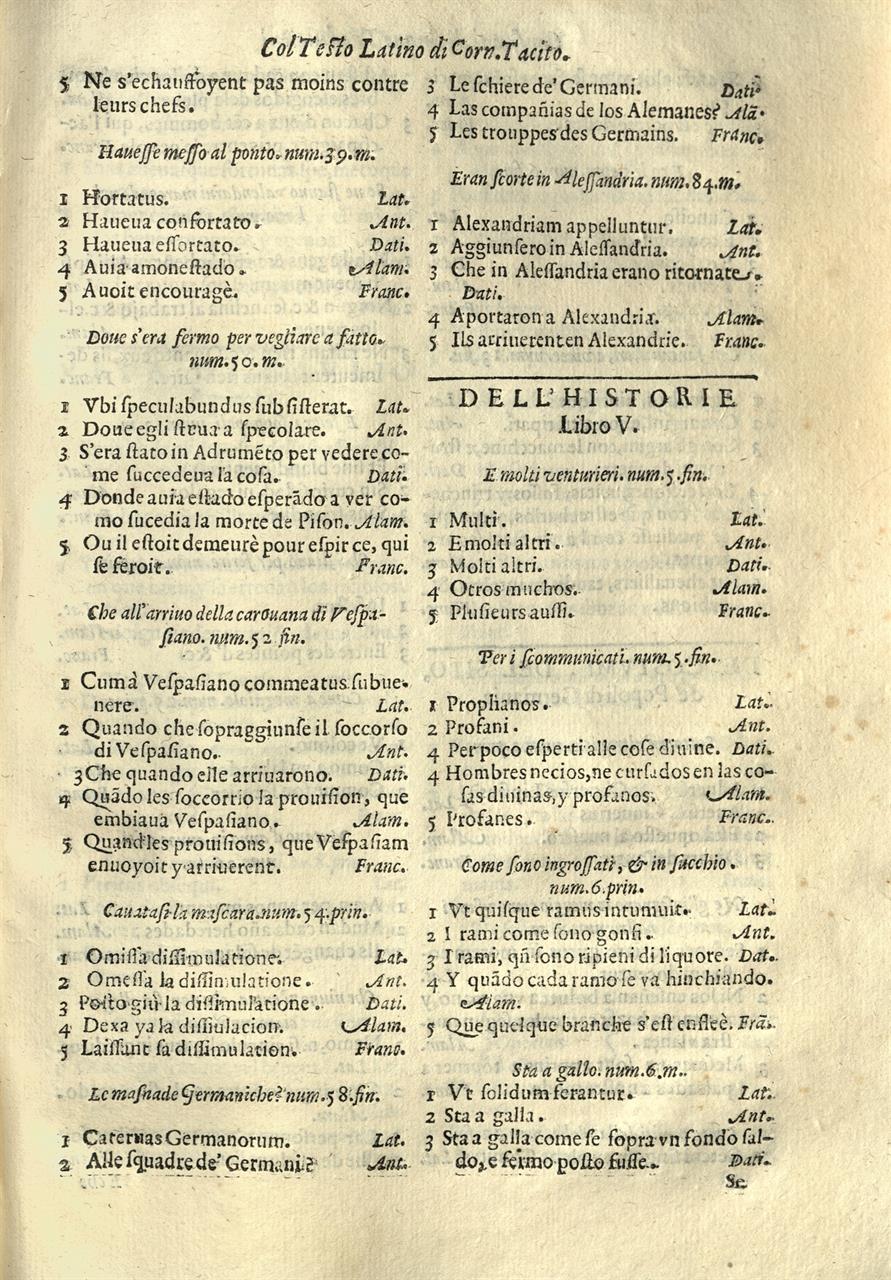 Col Testo Latino di Corn. Tacito.
5 Ne s'echauffoyent pas moins contre
leurs chefs.
Hauesse messo al ponto. num. 39. m.
1 Hortatus. Lat.
2 Haueua confortato. Ant.
3 Haueua essortato. Dati.
4 Auia amonestado. Alam.
5 Auoit encouragè. Franc.
Doue s'era fermo per vegliare a fatto.
num. 50. m.
1 Vbi speculabundus subsisterat. Lat.
2 Doue egli staua a specolare. Ant.
3 S'era stato in Adrumẽto per vedere co-
me succedeua la cosa. Dati.
4 Donde auia estado esperãdo a ver co-
mo sucedia la morte de Pison. Alam.
5 Ou il estoit demeurè pour espir ce, qui
se feroit. Franc.
Che all'arriuo della carouana di Vespa-
siano. num. 52 fin.
1 Cum à Vespasiano commeatus subue-
nere. Lat.
2 Quando che sopraggiunse il soccorso
di Vespasiano. Ant.
3 Che quando elle arriuarono. Dati.
4 Quãdo les soccorrio la prouision, que
embiaua Vespasiano. Alam.
5 Quand les prouisions, que Vespasiam
enuoyoit y arriuerent. Franc.
Cauatasi la mascara. num. 54. prin.
1 Omissa dissimulatione. Lat.
2 Omessa la dissimulatione. Ant.
3 Posto giù la dissimulatione. Dati.
4 Dexa ya la dissiulacion. Alam.
5 Laissant sa dissimulation. Franc.
Le masnade Germaniche? num. 58. fin.
1 Cateruas Germanorum. Lat.
2 Alle squadre de' Germani? Ant.
3 Le schiere de' Germani. Dati.
4 Las compañias de los Alemanes? Alã.
5 Les trouppes des Germains. Franc.
Eran scorte in Alessandria. num. 84. m.
1 Alexandriam appelluntur. Lat.
2 Aggiunsero in Alessandria. Ant.
3 Che in Alessandria erano ritornate.
Dati.
4 Aportaron a Alexandria. Alam.
5 Ils arriuerent en Alexandrie. Franc.
DELL'HISTORIE
Libro V.
E molti venturieri. num. 5. fin.
1 Multi. Lat.
2 E molti altri. Ant.
3 Molti altri. Dati.
4 Otros muchos. Alam.
5 Plusieurs aussi. Franc.
Per i scommunicati. num. 5. fin.
1 Prophanos. Lat.
2 Profani. Ant.
4 Per poco esperti alle cose diuine. Dati.
4 Hombres necios, ne cursados en las co-
sas diuinas, y profanos. Alam.
5 Profanes. Franc.
Come sono ingrossati, & in succhio.
num. 6. prin.
1 Vt quisque ramus intumuit. Lat.
2 I rami come sono gonfi. Ant.
3 I rami, qñ sono ripieni di liquore. Dat.
4 Y quãdo cada ramo se va hinchiando.
Alam.
5 Que quelque branche s'est enfleè. Frã.
Sta a gallo. num. 6. m.
1 Vt solidum ferantur. Lat.
2 Sta a galla. Ant.
3 Sta a galla come se sopra vn fondo sal-
do, e fermo posto fusse. Dati.
Se